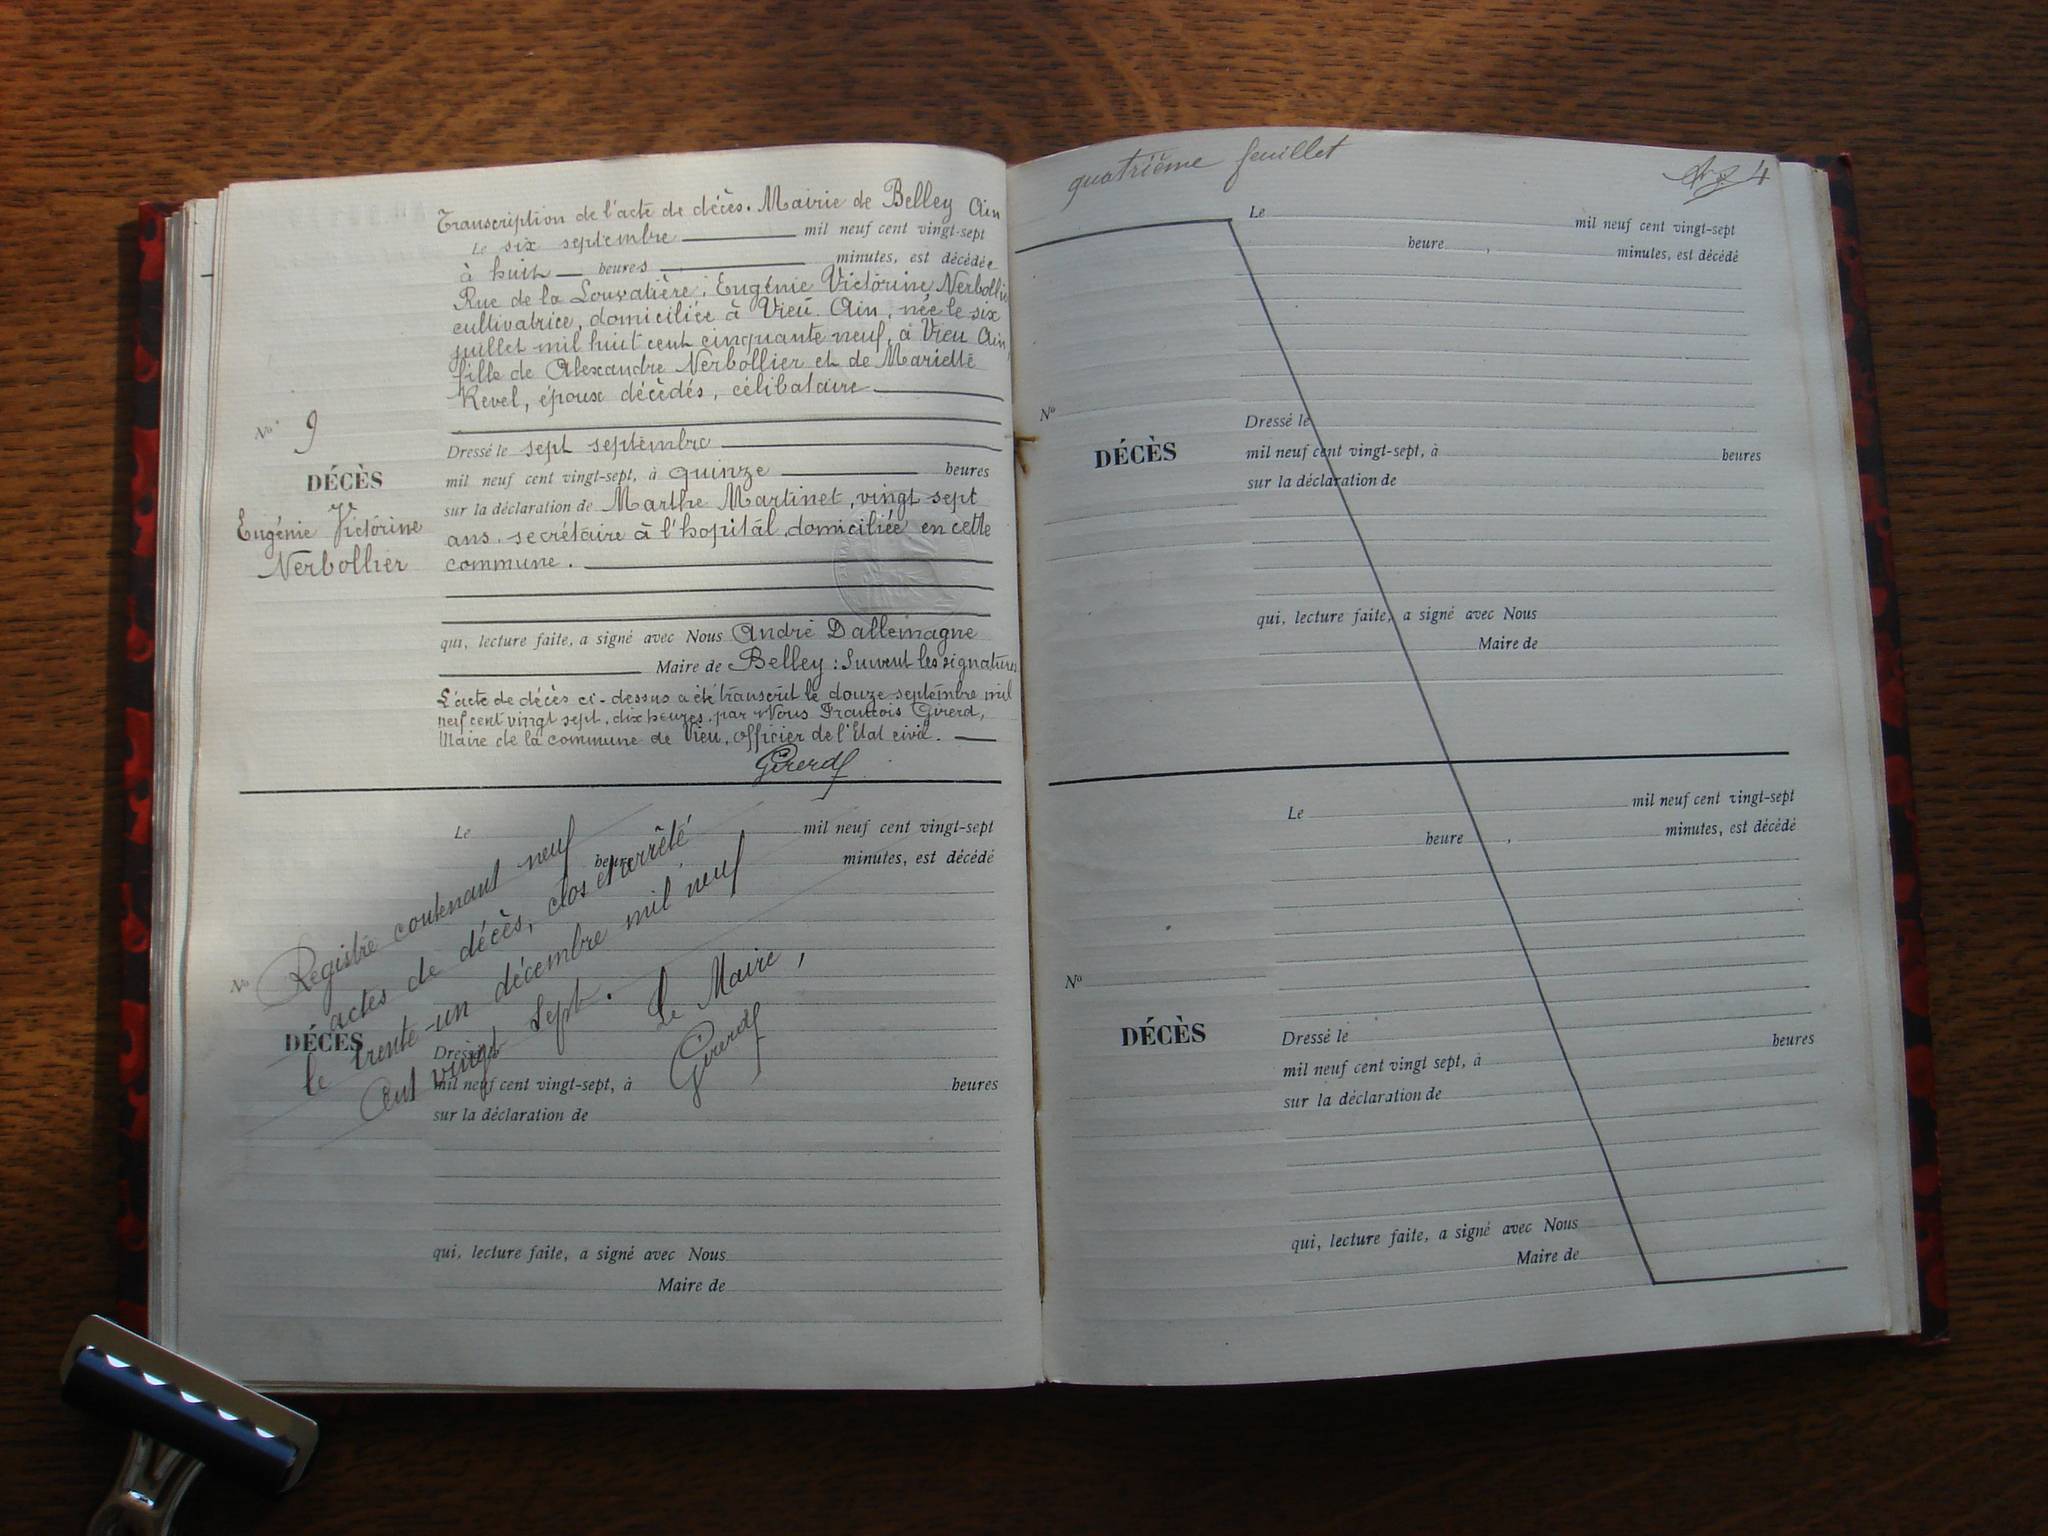 Transcription de l'acte de décès. Mairie de Belley Ain
Le six septembre mil neuf cent vingt-sept
à huit heures minutes, est décédée
Rue de la Louvatière, Eugénie Victorine Nerbollier
cultivatrice, domiciliée à Vieu Ain, née le six
juillet mil huit cent cinquante neuf, à Vieu Ain,
fille de Alexandre Nerbollier et de Mariette
Revel, époux décédés, célibataire
No 9
DÉCÈS
Eugénie Victorine
Nerbollier
Dressé le sept septembre
mil neuf cent vingt-sept, à quinze heures
sur la déclaration de Marthe Martinet, vingt sept
ans, secrétaire à l'hopital, domiciliée en cette
commune.
qui, lecture faite, a signé avec Nous André Dallemagne
Maire de Belley : Suivent les signatures
L'acte de décès ci-dessus a été transcrit le douze septembre mil
neuf cent vingt sept, dix heures, par Nous François Girerd,
Maire de la commune de Vieu, officier de l'Etat civil.
Girerd
Le mil neuf cent vingt-sept
heure minutes, est décédé
No
DÉCÈS
Registre contenant neuf
actes de décès, clos et arrêté
le trente-un décembre mil neuf
cent vingt sept.
Le Maire,
Girerd
Dressé le
mil neuf cent vingt-sept, à heures
sur la déclaration de
qui, lecture faite, a signé avec Nous
Maire de
quatrième feuillet
4
Le mil neuf cent vingt-sept
heure , minutes, est décédé
No
DÉCÈS
Dressé le
mil neuf cent vingt-sept, à heures
sur la déclaration de
qui, lecture faite, a signé avec Nous
Maire de
Le mil neuf cent vingt-sept
heure , minutes, est décédé
No
DÉCÈS
Dressé le
mil neuf cent vingt sept, à heures
sur la déclaration de
qui, lecture faite, a signé avec Nous
Maire de